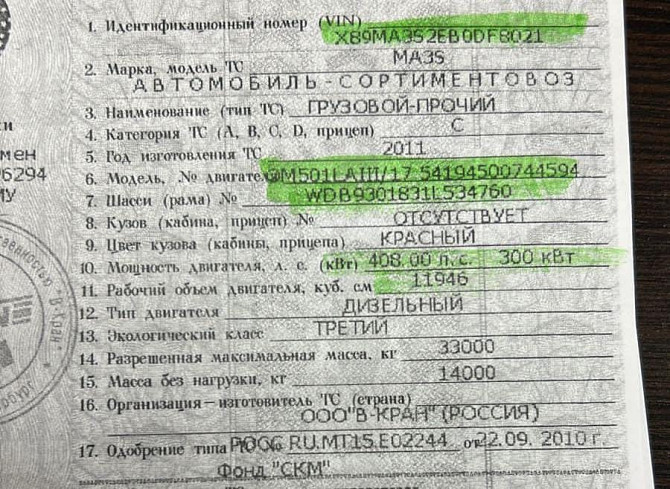 1. Идентификационный номер (VIN)
XB9MA3S2EB0DF8021
2. Марка, модель ТС MA3S
АВТОМОБИЛЬ-СОРТИМЕНТОВОЗ
3. Наименование (тип ТС) ГРУЗОВОЙ-ПРОЧИЙ
4. Категория ТС (А, В, С, D, прицеп) С
5. Год изготовления ТС 2011
6. Модель, № двигателя OM501LAIII/17 54194500744594
7. Шасси (рама) № WDB9301831L534760
8. Кузов (кабина, прицеп) № ОТСУТСТВУЕТ
9. Цвет кузова (кабины, прицепа) КРАСНЫЙ
10. Мощность двигателя, л. с. (кВт) 408.00 л.с. 300 кВт
11. Рабочий объем двигателя, куб. см 11946
12. Тип двигателя ДИЗЕЛЬНЫЙ
13. Экологический класс ТРЕТИЙ
14. Разрешенная максимальная масса, кг 33000
15. Масса без нагрузки, кг 14000
16. Организация–изготовитель ТС (страна)
ООО"В-КРАН" (РОССИЯ)
17. Одобрение типа РОСС RU.МТ15.Е02244 от 22.09. 2010 г.
Фонд "СКМ"
мен
6294
МУ